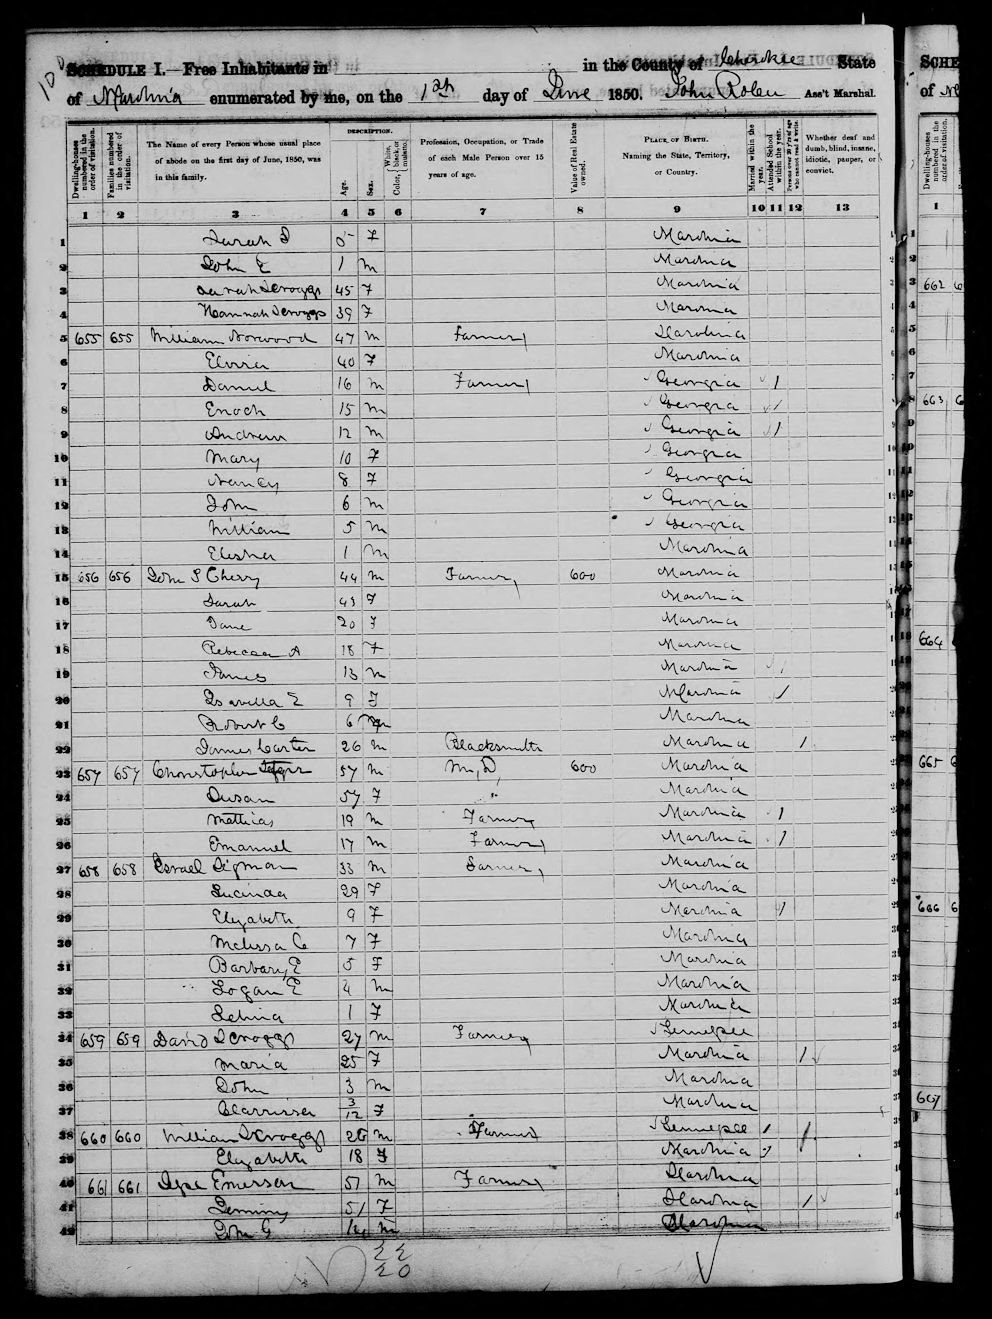 SCHEDULE I.—Free Inhabitants in in the County of Cherokee State
of N Carolina enumerated by me, on the 1st day of June 1850. John Rolen Ass't Marshal.
Dwelling-houses numbered in the order of visitation.
Families numbered in the order of visitation.
The Name of every Person whose usual place of abode on the first day of June, 1850, was in this family.
DESCRIPTION.
Age.
Sex.
Color, { White, black, or mulatto.
Profession, Occupation, or Trade of each Male Person over 15 years of age.
Value of Real Estate owned.
PLACE OF BIRTH. Naming the State, Territory, or Country.
Married within the year.
Attended School within the year.
Persons over 20 y'rs of age who cannot read & write.
Whether deaf and dumb, blind, insane, idiotic, pauper, or convict.
1 2 3 4 5 6 7 8 9 10 11 12 13
1 Sarah 5 F N Carolina
2 John E 1 m N Carolina
3 Sarah Scroggs 45 F N Carolina
4 Hannah Scroggs 39 F N Carolina
5 655 655 William Norwood 47 m Farmer S Carolina
6 Elvira 40 F N Carolina
7 Daniel 16 m Farmer Georgia 1
8 Enoch 15 m Georgia 1
9 Andrew 12 m Georgia 1
10 Mary 10 F Georgia
11 Nancy 8 F Georgia
12 John 6 m Georgia
13 William 5 m Georgia
14 Elisha 1 m N Carolina
15 656 656 John S Cherry 44 m Farmer 600 N Carolina
16 Sarah 43 F N Carolina
17 Jane 20 F N Carolina
18 Rebecca A 18 F N Carolina
19 James 13 m N Carolina /
20 Isavella E 9 F N Carolina /
21 Robert C 6 m N Carolina
22 James Carter 26 m Blacksmith N Carolina 1
23 657 657 Christopher 57 m M, D, 600 N Carolina
24 Susan 57 F " N Carolina
25 Mathias 19 m Farmer N Carolina 1
26 Emanuel 17 m Farmer N Carolina /
27 658 658 Esrael Sigman 33 m Farmer N Carolina
28 Lucinda 29 F N Carolina
29 Elizabeth 9 F N Carolina /
30 Melissa C 7 F N Carolina
31 Barbary E 5 F N Carolina
32 Logan E 4 m N Carolina
33 Selina 1 F N Carolina
34 659 659 David Scroggs 27 m Farmer Tennessee
35 Maria 25 F N Carolina 1
36 John 3 m N Carolina
37 Clarrissa 3/12 F N Carolina
38 660 660 William Scroggs 26 m Farmer Tennessee / /
39 Elizabeth 18 F N Carolina
40 661 661 Emerson 51 m Farmer S Carolina
41 Jemimy 51 F S Carolina /
42 John G 14 m S Carolina
SCHE
of N
1
662
663
664
665
666
667